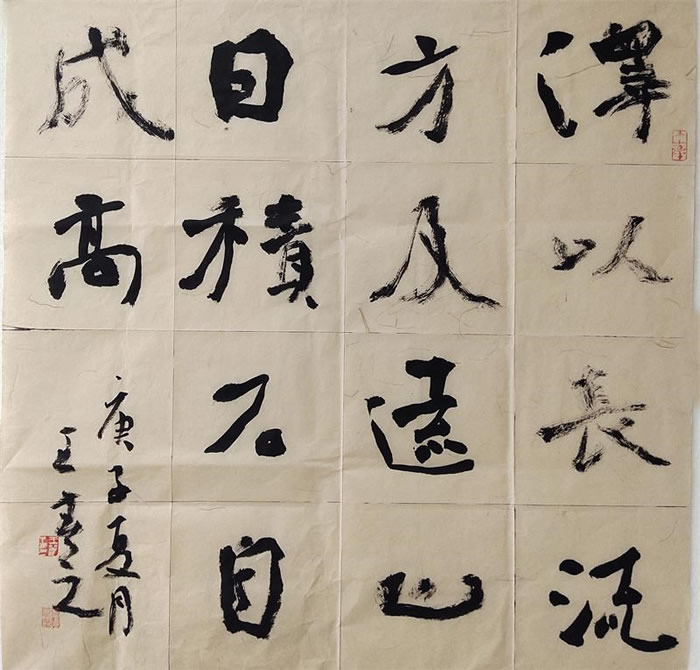 澤以長流
方及遠山
因積石自
成高
庚子夏月
王之